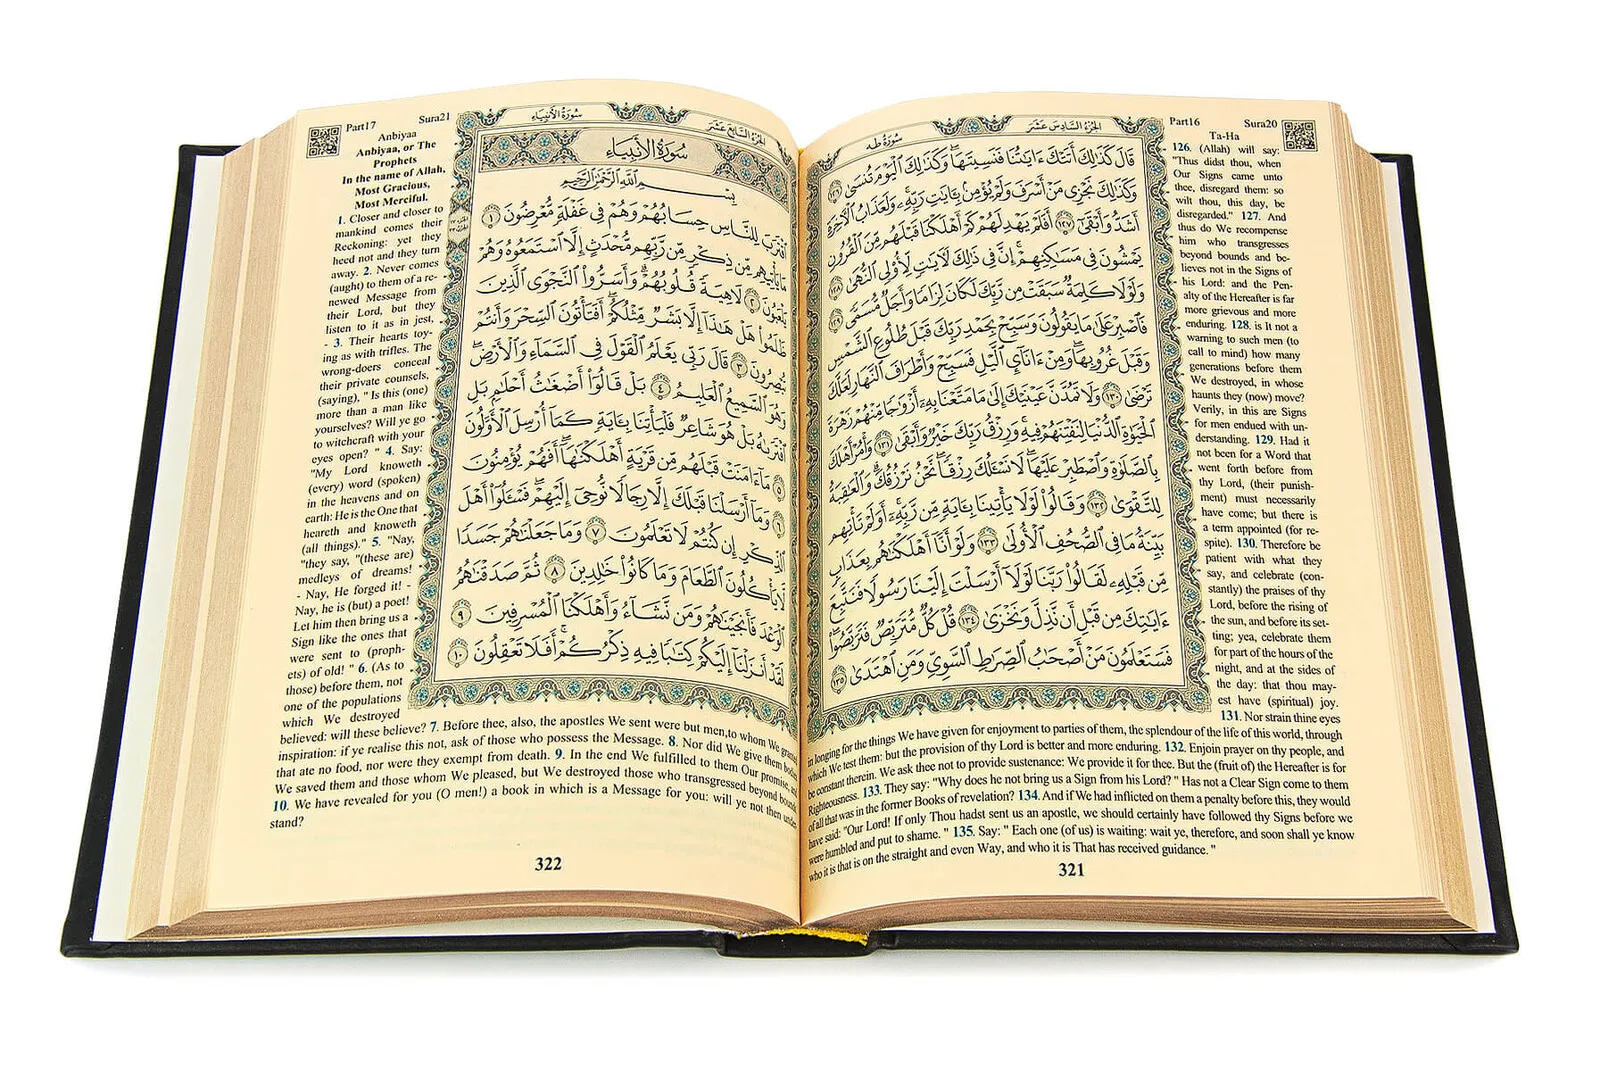 Part16 Sura20
سُورَةُ طه
الجُزْءُ السَّادِسَ عَشَرَ
قَالَ كَذَٰلِكَ أَتَتْكَ ءَايَٰتُنَا فَنَسِيتَهَا ۖ وَكَذَٰلِكَ ٱلْيَوْمَ تُنسَىٰ ١٢٦
وَكَذَٰلِكَ نَجْزِى مَنْ أَسْرَفَ وَلَمْ يُؤْمِنۢ بِـَٔايَٰتِ رَبِّهِۦ ۚ وَلَعَذَابُ ٱلْءَاخِرَةِ
أَشَدُّ وَأَبْقَىٰٓ ١٢٧ أَفَلَمْ يَهْدِ لَهُمْ كَمْ أَهْلَكْنَا قَبْلَهُم مِّنَ ٱلْقُرُونِ
يَمْشُونَ فِى مَسَٰكِنِهِمْ ۗ إِنَّ فِى ذَٰلِكَ لَءَايَٰتٍ لِّأُو۟لِى ٱلنُّهَىٰ ١٢٨
وَلَوْلَا كَلِمَةٌ سَبَقَتْ مِن رَّبِّكَ لَكَانَ لِزَامًا وَأَجَلٌ مُّسَمًّى ١٢٩
فَٱصْبِرْ عَلَىٰ مَا يَقُولُونَ وَسَبِّحْ بِحَمْدِ رَبِّكَ قَبْلَ طُلُوعِ ٱلشَّمْسِ
وَقَبْلَ غُرُوبِهَا ۖ وَمِنْ ءَانَآئِ ٱلَّيْلِ فَسَبِّحْ وَأَطْرَافَ ٱلنَّهَارِ لَعَلَّكَ
تَرْضَىٰ ١٣٠ وَلَا تَمُدَّنَّ عَيْنَيْكَ إِلَىٰ مَا مَتَّعْنَا بِهِۦٓ أَزْوَٰجًا مِّنْهُمْ زَهْرَةَ
ٱلْحَيَوٰةِ ٱلدُّنْيَا لِنَفْتِنَهُمْ فِيهِ ۚ وَرِزْقُ رَبِّكَ خَيْرٌ وَأَبْقَىٰ ١٣١ وَأْمُرْ أَهْلَكَ
بِٱلصَّلَوٰةِ وَٱصْطَبِرْ عَلَيْهَا ۖ لَا نَسْـَٔلُكَ رِزْقًا ۖ نَّحْنُ نَرْزُقُكَ ۗ وَٱلْعَٰقِبَةُ
لِلتَّقْوَىٰ ١٣٢ وَقَالُوا۟ لَوْلَا يَأْتِينَا بِـَٔايَةٍ مِّن رَّبِّهِۦٓ ۚ أَوَلَمْ تَأْتِهِم
بَيِّنَةُ مَا فِى ٱلصُّحُفِ ٱلْأُولَىٰ ١٣٣ وَلَوْ أَنَّآ أَهْلَكْنَٰهُم بِعَذَابٍ
مِّن قَبْلِهِۦ لَقَالُوا۟ رَبَّنَا لَوْلَآ أَرْسَلْتَ إِلَيْنَا رَسُولًا فَنَتَّبِعَ
ءَايَٰتِكَ مِن قَبْلِ أَن نَّذِلَّ وَنَخْزَىٰ ١٣٤ قُلْ كُلٌّ مُّتَرَبِّصٌ فَتَرَبَّصُوا۟ ۖ
فَسَتَعْلَمُونَ مَنْ أَصْحَٰبُ ٱلصِّرَٰطِ ٱلسَّوِىِّ وَمَنِ ٱهْتَدَىٰ ١٣٥
Ta-Ha
126. (Allah) will say:
"Thus didst thou, when
Our Signs came unto
thee, disregard them: so
wilt thou, this day, be
disregarded." 127. And
thus do We recompense
him who transgresses
beyond bounds and be-
lieves not in the Signs of
his Lord: and the Pen-
alty of the Hereafter is far
more grievous and more
enduring. 128. is It not a
warning to such men (to
call to mind) how many
generations before them
We destroyed, in whose
haunts they (now) move?
Verily, in this are Signs
for men endued with un-
derstanding. 129. Had it
not been for a Word that
went forth before from
thy Lord, (their punish-
ment) must necessarily
have come; but there is
a term appointed (for re-
spite). 130. Therefore be
patient with what they
say, and celebrate (con-
stantly) the praises of thy
Lord, before the rising of
the sun, and before its set-
ting; yea, celebrate them
for part of the hours of the
night, and at the sides of
the day: that thou may-
est have (spiritual) joy.
131. Nor strain thine eyes
in longing for the things We have given for enjoyment to parties of them, the splendour of the life of this world, through
which We test them: but the provision of thy Lord is better and more enduring. 132. Enjoin prayer on thy people, and
be constant therein. We ask thee not to provide sustenance: We provide it for thee. But the (fruit of) the Hereafter is for
Righteousness. 133. They say: "Why does he not bring us a Sign from his Lord? " Has not a Clear Sign come to them
of all that was in the former Books of revelation? 134. And if We had inflicted on them a penalty before this, they would
have said: "Our Lord! If only Thou hadst sent us an apostle, we should certainly have followed thy Signs before we
were humbled and put to shame. " 135. Say: " Each one (of us) is waiting: wait ye, therefore, and soon shall ye know
who it is that is on the straight and even Way, and who it is That has received guidance. "
321
Part17 Sura21
سُورَةُ الأَنبِيَاء
الجُزْءُ السَّابِعَ عَشَرَ
سُورَةُ الأَنبِيَاءِ
بِسْمِ ٱللَّهِ ٱلرَّحْمَٰنِ ٱلرَّحِيمِ
ٱقْتَرَبَ لِلنَّاسِ حِسَابُهُمْ وَهُمْ فِى غَفْلَةٍ مُّعْرِضُونَ ١
مَا يَأْتِيهِم مِّن ذِكْرٍ مِّن رَّبِّهِم مُّحْدَثٍ إِلَّا ٱسْتَمَعُوهُ وَهُمْ
يَلْعَبُونَ ٢ لَاهِيَةً قُلُوبُهُمْ ۗ وَأَسَرُّوا۟ ٱلنَّجْوَى ٱلَّذِينَ
ظَلَمُوا۟ هَلْ هَٰذَآ إِلَّا بَشَرٌ مِّثْلُكُمْ ۖ أَفَتَأْتُونَ ٱلسِّحْرَ وَأَنتُمْ
تُبْصِرُونَ ٣ قَالَ رَبِّى يَعْلَمُ ٱلْقَوْلَ فِى ٱلسَّمَآءِ وَٱلْأَرْضِ ۖ
وَهُوَ ٱلسَّمِيعُ ٱلْعَلِيمُ ٤ بَلْ قَالُوٓا۟ أَضْغَٰثُ أَحْلَٰمٍۭ بَلِ
ٱفْتَرَىٰهُ بَلْ هُوَ شَاعِرٌ فَلْيَأْتِنَا بِـَٔايَةٍ كَمَآ أُرْسِلَ ٱلْأَوَّلُونَ
٥ مَآ ءَامَنَتْ قَبْلَهُم مِّن قَرْيَةٍ أَهْلَكْنَٰهَآ ۖ أَفَهُمْ يُؤْمِنُونَ
٦ وَمَآ أَرْسَلْنَا قَبْلَكَ إِلَّا رِجَالًا نُّوحِىٓ إِلَيْهِمْ ۖ فَسْـَٔلُوٓا۟ أَهْلَ
ٱلذِّكْرِ إِن كُنتُمْ لَا تَعْلَمُونَ ٧ وَمَا جَعَلْنَٰهُمْ جَسَدًا
لَّا يَأْكُلُونَ ٱلطَّعَامَ وَمَا كَانُوا۟ خَٰلِدِينَ ٨ ثُمَّ صَدَقْنَٰهُمُ
ٱلْوَعْدَ فَأَنجَيْنَٰهُمْ وَمَن نَّشَآءُ وَأَهْلَكْنَا ٱلْمُسْرِفِينَ ٩
لَقَدْ أَنزَلْنَآ إِلَيْكُمْ كِتَٰبًا فِيهِ ذِكْرُكُمْ ۖ أَفَلَا تَعْقِلُونَ ١٠
Anbiyaa
Anbiyaa, or The
Prophets
In the name of Allah,
Most Gracious,
Most Merciful.
1. Closer and closer to
mankind comes their
Reckoning: yet they
heed not and they turn
away. 2. Never comes
(aught) to them of a re-
newed Message from
their Lord, but they
listen to it as in jest,
- 3. Their hearts toy-
ing as with trifles. The
wrong-doers conceal
their private counsels,
(saying), " Is this (one)
more than a man like
yourselves? Will ye go
to witchcraft with your
eyes open? " 4. Say:
"My Lord knoweth
(every) word (spoken)
in the heavens and on
earth: He is the One that
heareth and knoweth
(all things)." 5. "Nay,
"they say, "(these are)
medleys of dreams!
- Nay, He forged it! -
Nay, he is (but) a poet!
Let him then bring us a
Sign like the ones that
were sent to (proph-
ets) of old! " 6. (As to
those) before them, not
one of the populations
which We destroyed
believed: will these believe? 7. Before thee, also, the apostles We sent were but men,to whom We
inspiration: if ye realise this not, ask of those who possess the Message. 8. Nor did We give them
that ate no food, nor were they exempt from death. 9. In the end We fulfilled to them Our promise,
We saved them and those whom We pleased, but We destroyed those who transgressed beyond
10. We have revealed for you (O men!) a book in which is a Message for you: will ye not then under
stand?
322